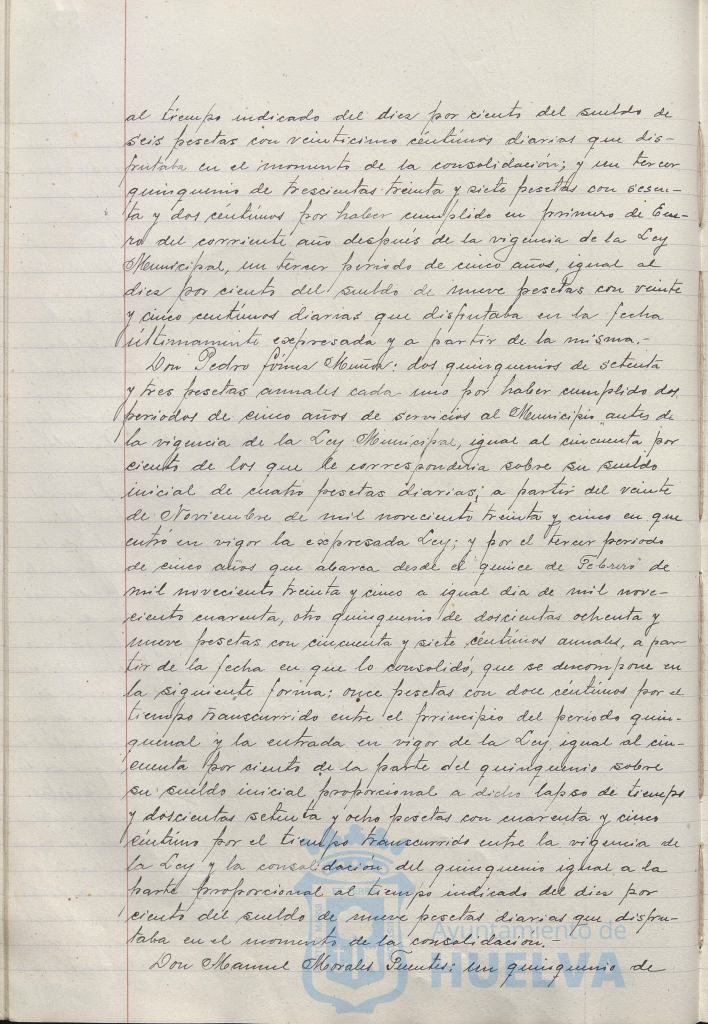 al tiempo indicado del diez por ciento del sueldo de
seis pesetas con veinticinco céntimos diarias que dis-
frutaba en el momento de la consolidación; y un tercer
quinquenio de trescientas treinta y siete pesetas con sesen-
ta y dos céntimos por haber cumplido en primero de Ene-
ro del corriente año después de la vigencia de la Ley
Municipal, un tercer periodo de cinco años, igual al
diez por ciento del sueldo de nueve pesetas con veinte
y cinco centimos diarias que disfrutaba en la fecha
últimamente expresada y a partir de la misma.-
Don Pedro Muñoz: dos quinquenios de setenta
y tres pesetas annales cada uno por haber cumplido dos
periodos de cinco años de servicios al Municipio antes de
la vigencia de la Ley Municipal, igual al cincuenta por
ciento de los que le correspondería sobre su sueldo
inicial de cuatro pesetas diarias; a partir del veinte
de Noviembre de mil noveciento treinta y cinco en que
entró en vigor la expresada Ley; y por el tercer periodo
de cinco años que abarca desde el quince de Febrero de
mil noveciento treinta y cinco a igual dia de mil nove-
ciento cuarenta, otro quinquenio de doscientas ochenta y
nueve pesetas con cincuenta y siete céntimos annales, a par-
tir de la fecha en que lo consolidó, que se descompone en
la siguiente forma: once pesetas con doce céntimos por el
tiempo transcurrido entre el principio del periodo quin-
quenal y la entrada en vigor de la Ley, igual al cin-
cuenta por ciento de la parte del quinquenio sobre
su sueldo inicial proporcional a dicho lapso de tiempo
y doscientas setenta y ocho pesetas con cuarenta y cinco
céntimo por el tiempo transcurrido entre la vigencia de
la Ley y la consolidación del quinquenio igual a la
parte proporcional al tiempo indicado del diez por
ciento del sueldo de nueve pesetas diarias que disfru-
taba en el momento de la consolidación.-
Don Manuel Morales Fuentes: un quinquenio de
Ayuntamiento de
HUELVA